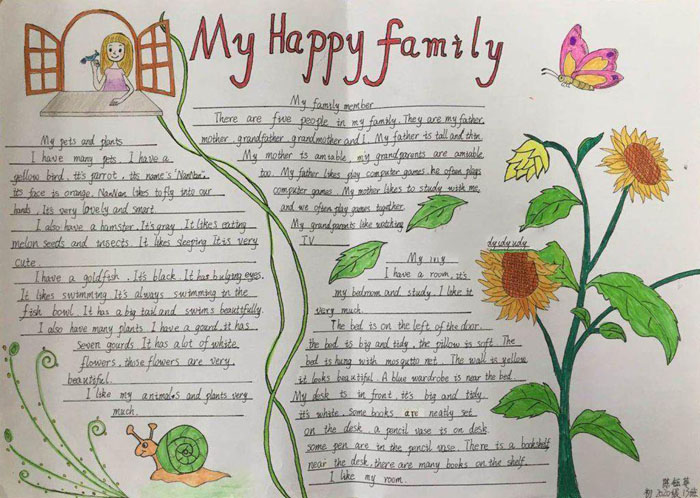 My Happy family
My pets and plants
I have many pets. I have a
yellow bird, it's parrot, it's name's "NanNan".
its face is orange. NanNan likes to fly into our
hands. Its very lovely and smart.
I also have a hamster. It's gray. It likes eating
melon seeds and insects. It likes sleeping. It is very
cute.
I have a goldfish. It's black. It has bulging eyes.
It likes swimming. It's always swimming in the
fish bowl. It has a big tail and swims beautifully.
I also have many plants. I have a gourd, it has
seven gourds. It has a lot of white
flowers, those flowers are very
beautiful.
I like my animals and plants very
much.
My family member
There are five people in my family. They are my father,
mother, grandfather, grandmother and I. My father is tall and thin.
My mother is amiable, my grandparents are amiable
too. My father likes play computer games, he often plays
computer games. My mother likes to study with me,
and we often play games together.
My grandparents like watching
TV
My
I have a room, it's
my bedroom and study. I like it
very much.
The bed is on the left of the door.
the bed is big and tidy, the pillow is soft. The
bed is hung with mosquito net. The wall is yellow
it looks beautiful. A blue wardrobe is near the bed.
My desk is in front, it's big and tidy.
it's white. some books are neatly set
on the desk, a pencil vase is on desk.
some pen are in the pencil vase. There is a bookshelf
near the desk, there are many books on the shelf.
I like my room.
初2020级13班